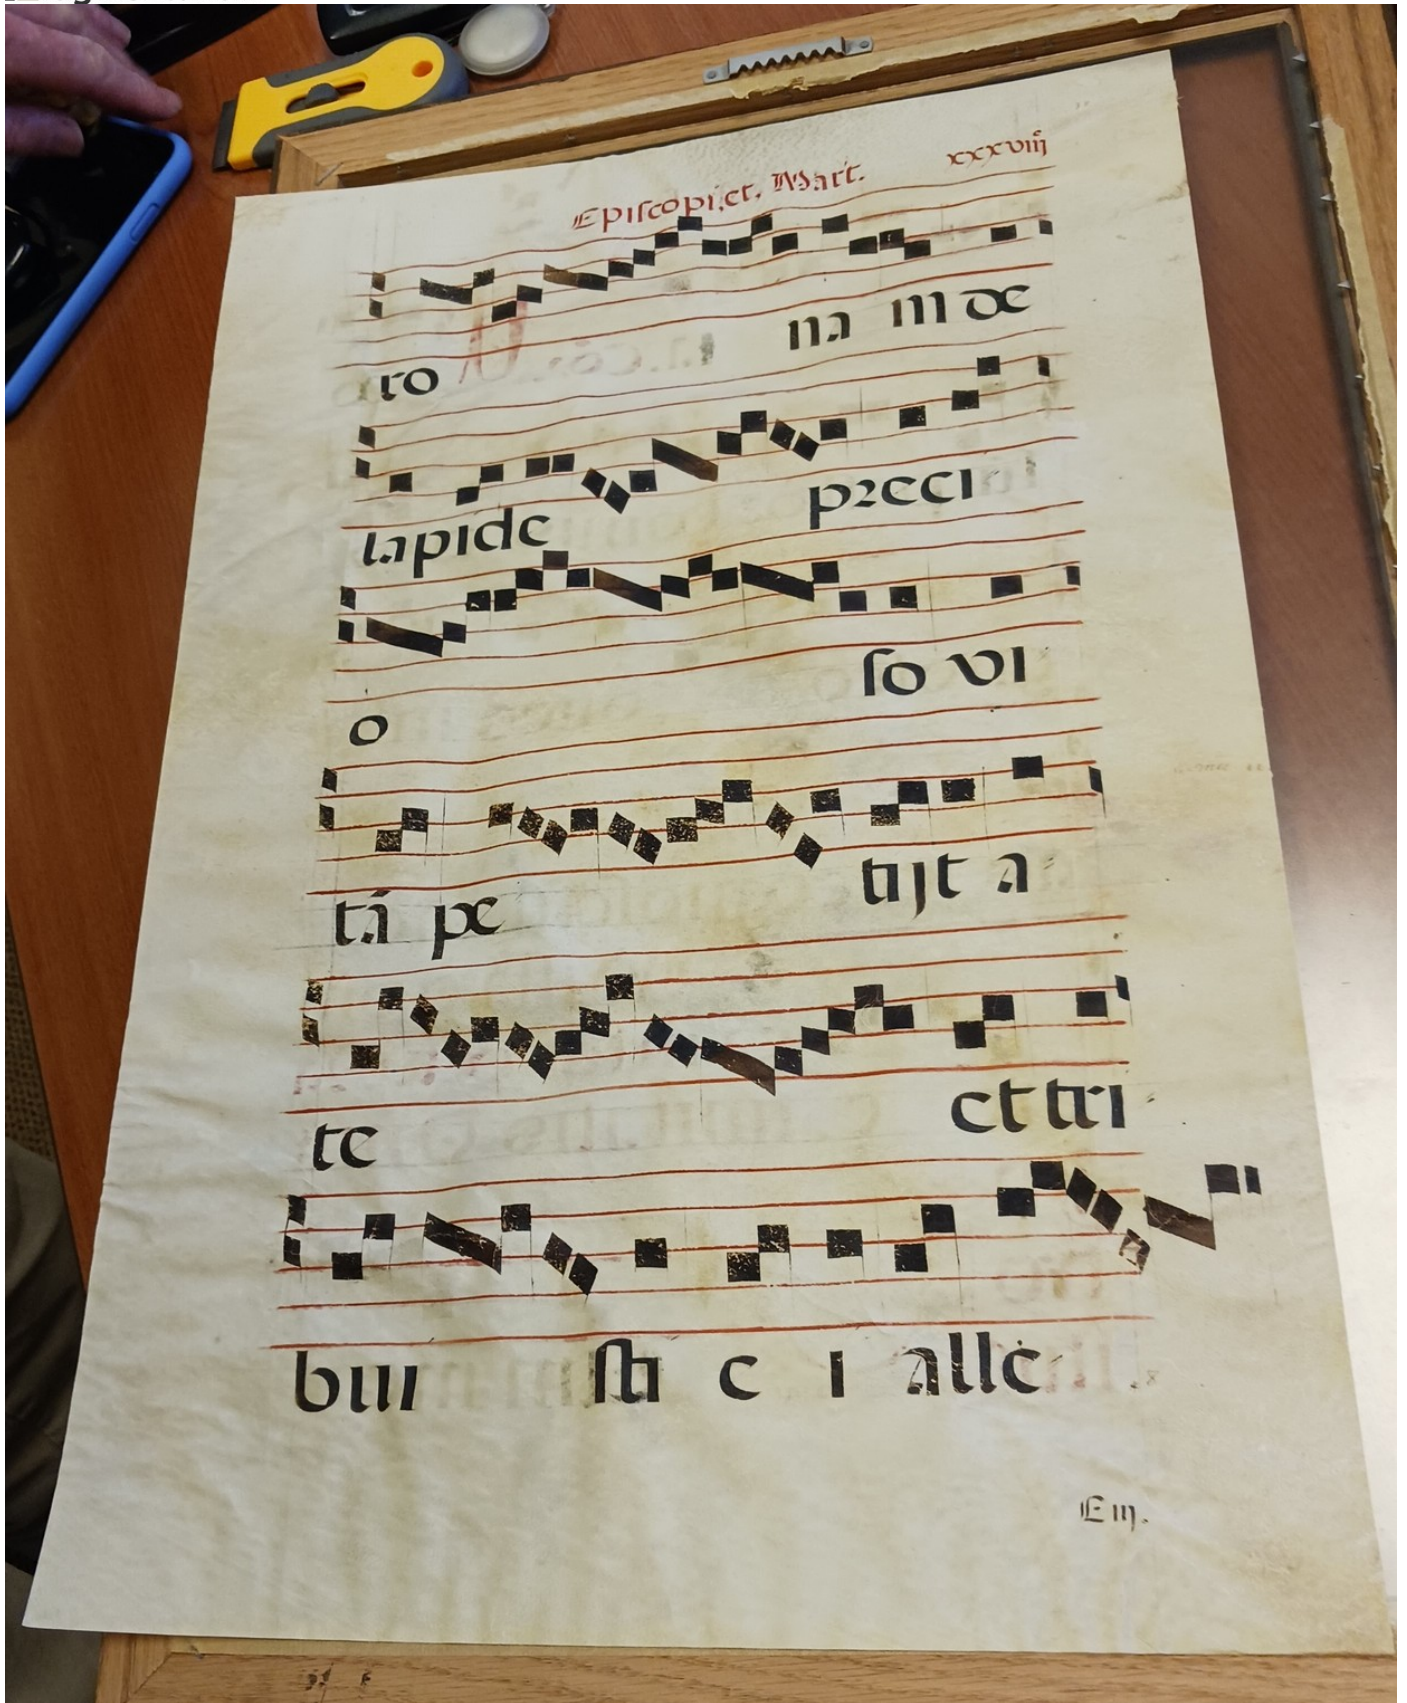 Episcopi.et. Mart. xxxviij
ro na m de
lapide preci
o so vi
tá pe tijt a
te et tri
bui sti e i alle
E iij.